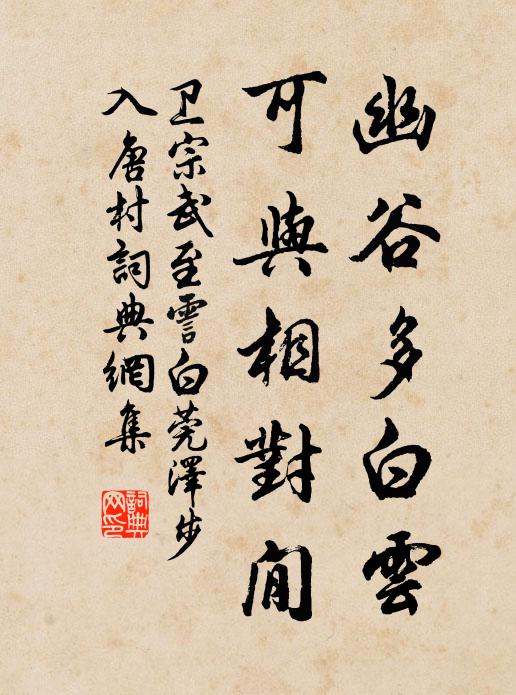 幽谷多白雲
可與相對閒
卫宗武至霅白莞澤步
入唐村詞典網集
詞典网印